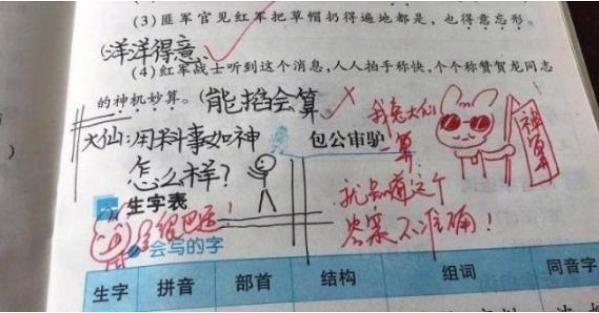 (3) 匪军官见红军把草帽扔得遍地都是，也得意忘形。
(洋洋得意)
(4) 红军战士听到这个消息，人人拍手称快，个个称赞贺龙同志
的神机妙算。(能掐会算)
大仙:用料事如神
怎么样?
包公审驴
我兔大仙
一算
就知道这个
答案不准确!
神算
生字表
会写的字
生字 拼音 部首 结构 组词 同音字